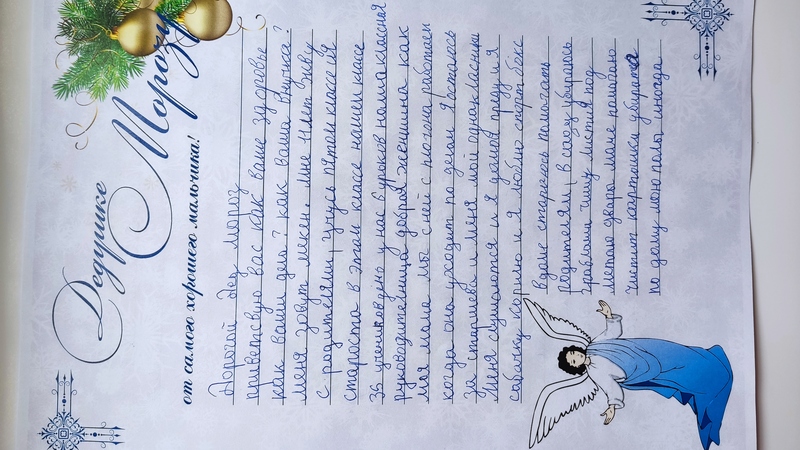 Дедушке
Морозу
от самого хорошего мальчика!
Дорогой Дед мороз
приветсвую вас как ваше здоровье
как ваши дела? как ваша внучка?
меня зовут мне 11 лет живу
с родителями, учусь пятом классе я
староста в этом классе нашем класе
36 учеников у нас 6 уроков наша класная
руководительница добрая женщина как
моя мама мы с ней с много работаем
когда она уходит по делам я остаюсь
за старшева и меня мой однокласники
меня слушаются и я домой приду и я
собачку кормлю и я люблю спорт бокс
вдоме стараюсь помогать
родителям, в саду убираюсь
граблями чищу листья под
метаю двора маме помогаю
чистит картошки убирать
по дому мою полы иногда